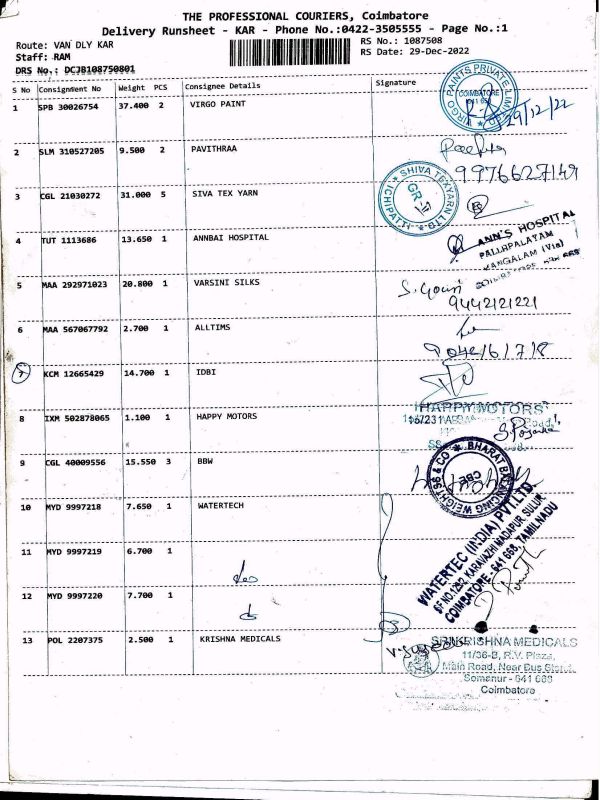 THE PROFESSIONAL COURIERS, Coimbatore
Delivery Runsheet - KAR - Phone No.:0422-3505555 - Page No.:1
Route: VAN DLY KAR RS No.: 1087508
Staff: RAM RS Date: 29-Dec-2022
DRS No.: DCJB108750801
S No Consignment No Weight PCS Consignee Details Signature
1 SPB 30026754 37.400 2 VIRGO PAINT
VIRGO PAINTS PRIVATE LIMITED COIMBATORE 29/12/22
2 SLM 310527205 9.500 2 PAVITHRAA
9976627149
3 CGL 21030272 31.000 5 SIVA TEX YARN
SHIVA TEXYARN LTD. ICHIPATTI
4 TUT 1113686 13.650 1 ANNBAI HOSPITAL
ANN'S HOSPITAL
PALLAPALAYAM
MANGALAM (Via)
5 MAA 292971023 20.800 1 VARSINI SILKS
S. Gowri
9442121221
6 MAA 567067792 2.700 1 ALLTIMS
7 KCM 12665429 14.700 1 IDBI
8 IXM 502878065 1.100 1 HAPPY MOTORS
"HAPPY MOTORS"
9 CGL 40009556 15.550 3 BBW
BHARAT BALANCING WEIGHTSS & CO CBE
10 MYD 9997218 7.650 1 WATERTECH
WATERTEC (INDIA) PVT.LTD.
SF NO.129/2, KARAVAZHI MADAPUR SULUR
COIMBATORE - 641 668, TAMILNADU
11 MYD 9997219 6.700 1
12 MYD 9997220 7.700 1
13 POL 2207375 2.500 1 KRISHNA MEDICALS
SRI KRISHNA MEDICALS
11/36-B, R.V. Plaza,
Main Road, Near Bus Stand,
Somanur - 641 668
Coimbatore